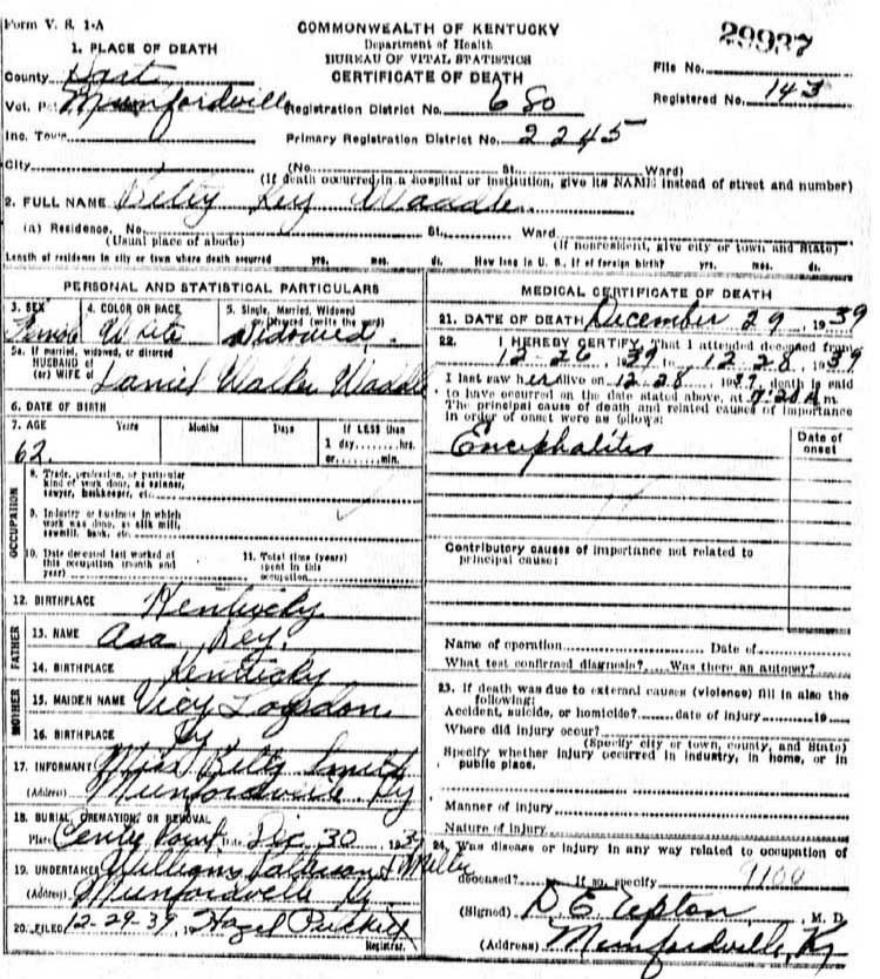 Form V. S. 1-A
COMMONWEALTH OF KENTUCKY
Department of Health
BUREAU OF VITAL STATISTICS
CERTIFICATE OF DEATH
29937
File No.
Registered No. 143
1. PLACE OF DEATH
County Hart
Vot. Pct. Munfordville Registration District No. 680
Inc. Town Primary Registration District No. 2245
City (No. St. Ward)
(If death occurred in a hospital or institution, give its NAME instead of street and number)
2. FULL NAME Betty Key Waddle
(a) Residence. No. St., Ward.
(Usual place of abode) (If nonresident, give city or town and State)
Length of residence in city or town where death occurred yrs. mos. ds. How long in U. S., if of foreign birth? yrs. mos. ds.
PERSONAL AND STATISTICAL PARTICULARS
3. SEX 4. COLOR OR RACE 5. Single, Married, Widowed
or Divorced (write the word)
Female White Widowed.
5a. If married, widowed, or divorced
HUSBAND of
(or) WIFE of Daniel Walker Waddle
6. DATE OF BIRTH
7. AGE Years Months Days If LESS than
1 day, hrs.
or min.
62.
OCCUPATION
8. Trade, profession, or particular
kind of work done, as spinner,
sawyer, bookkeeper, etc.
9. Industry or business in which
work was done, as silk mill,
sawmill, bank, etc.
10. Date deceased last worked at
this occupation (month and
year)
11. Total time (years)
spent in this
occupation
12. BIRTHPLACE Kentucky
FATHER
13. NAME Asa Key.
14. BIRTHPLACE Kentucky
MOTHER
15. MAIDEN NAME Vicy Logsdon
16. BIRTHPLACE Ky
17. INFORMANT Miss Betty Smith
(Address) Munfordville Ky
18. BURIAL, CREMATION, OR REMOVAL
Place Center Point Date Dec. 30 1939
19. UNDERTAKER Williams & Miller
(Address) Munfordville Ky.
20. FILED 12-29-39, 19 Hazel
Registrar.
MEDICAL CERTIFICATE OF DEATH
21. DATE OF DEATH December 29, 1939
22. I HEREBY CERTIFY, That I attended deceased from
12-26 1939 to 12-28, 1939
I last saw her alive on 12-28, 1939, death is said
to have occurred on the date stated above, at 7:20 A m.
The principal cause of death and related causes of importance
in order of onset were as follows:
Date of
onset
Encephalitis
Contributory causes of importance not related to
principal cause:
Name of operation Date of
What test confirmed diagnosis? Was there an autopsy?
23. If death was due to external causes (violence) fill in also the
following:
Accident, suicide, or homicide? date of injury 19
Where did injury occur?
(Specify city or town, county, and State)
Specify whether injury occurred in industry, in home, or in
public place.
Manner of Injury
Nature of Injury
24. Was disease or injury in any way related to occupation of
deceased? If so, specify
(Signed) D. E. Upton, M. D.
(Address) Munfordville, Ky